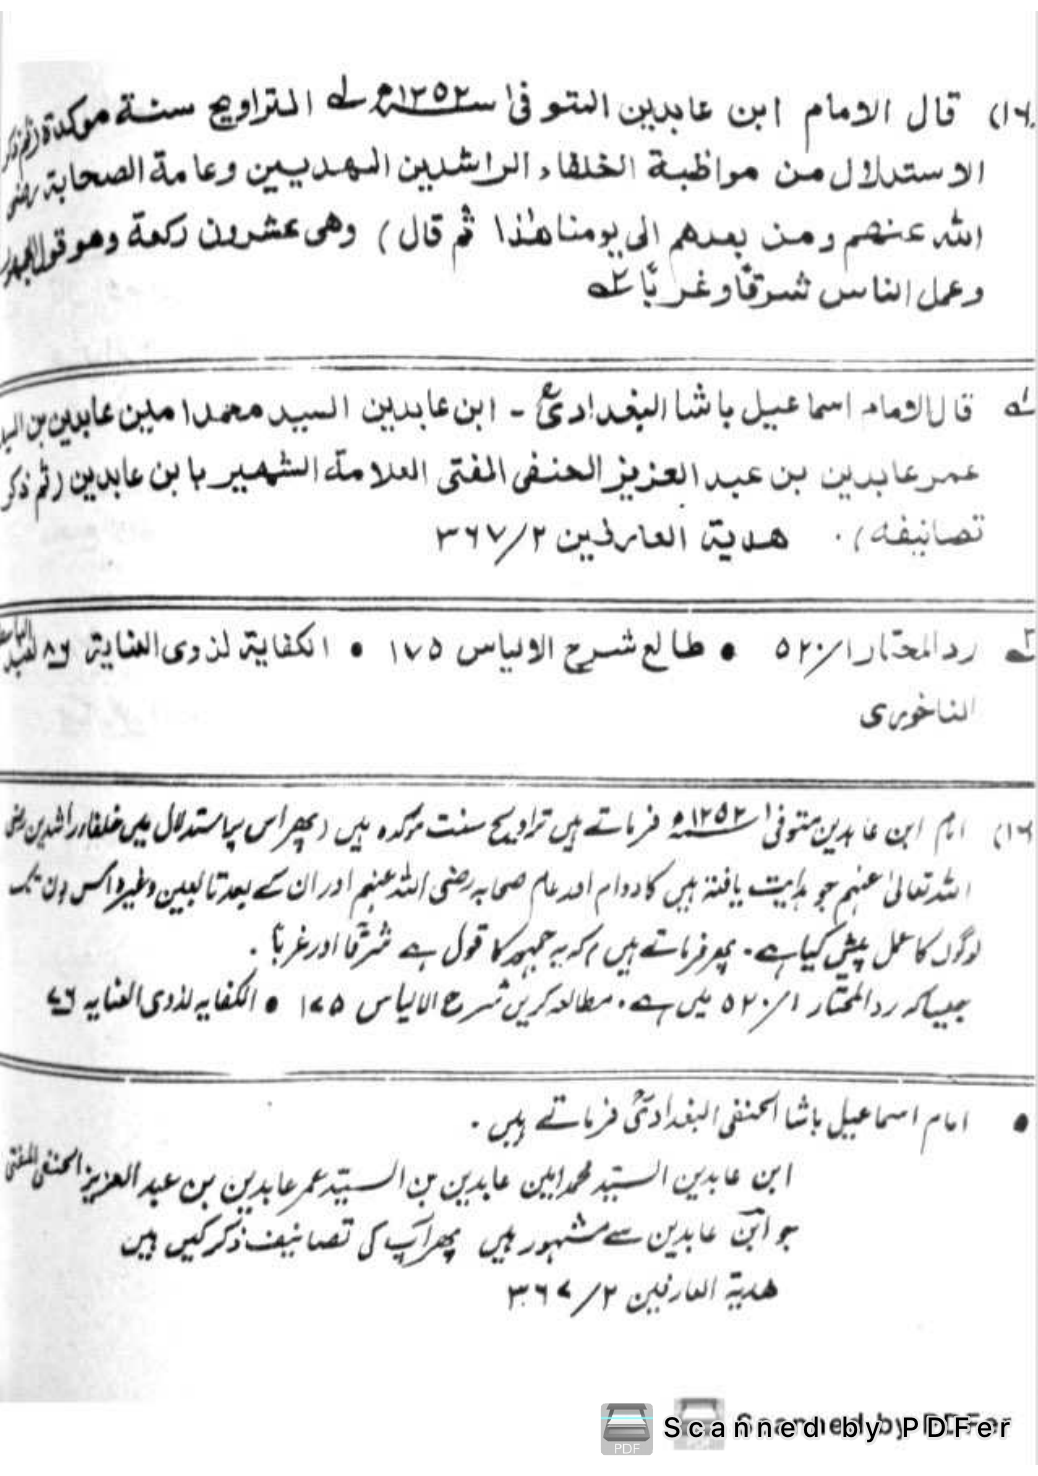 (١٦) قال الامام ابن عابدين المتوفىٰ ١٢٥٢ھ لـه التراويح سنة موكدة (ثم ذكر
الاستدلال من مواظبة الخلفاء الراشدين المهديين وعامة الصحابة رضى
الله عنهم ومن بعدهم الى يومنا هٰذا ثم قال) وهى عشرون ركعة وهو قول الجمهور
وعمل الناس شرقًا وغربًا ٢ـه
١ـه قال الامام اسماعيل باشا البغدادىؒ - ابن عابدين السيد محمد امين عابدين بن السيد
عمر عابدين بن عبد العزيز الحنفى المفتى العلامة الشهير بابن عابدين (ثم ذكر
تصانيفه) . هدية العارفين ٢/٣٦٧
٢ـه رد المحتار ١/٥٢٠ • طالع شرح الالياس ١٧٥ • الكفاية لذوى العناية ٨٦ لعبد الباسط
الفاخورى
(١٦) امام ابن عابدین متوفیٰ ١٢٥٢ھ فرماتے ہیں تراویح سنت مؤکدہ ہیں (پھر اس پر استدلال میں خلفاء راشدین رضی
اللہ تعالیٰ عنہم جو ہدایت یافتہ ہیں کا دوام اور عام صحابہ رضی اللہ عنہم اور ان کے بعد تابعین وغیرہ اس دن تک
لوگوں کا عمل پیش کیا ہے۔ پھر فرماتے ہیں) کہ یہ جمہور کا قول ہے شرقًا اور غربًا .
جیسا کہ رد المحتار ١/٥٢٠ میں ہے۔ مطالعہ کریں شرح الالیاس ١٧٥ • الکفایہ لذوی العنایہ
• امام اسماعیل باشا الحنفی البغدادیؒ فرماتے ہیں .
ابن عابدین السیّد محمد امین عابدین بن السیّد عمر عابدین بن عبد العزیز الحنفی المفتی
جو ابن عابدین سے مشہور ہیں پھر آپ کی تصانیف ذکر کیں ہیں
ھدیۃ العارفین ٢/٣٦٧
Scanned by PDFer
PDF